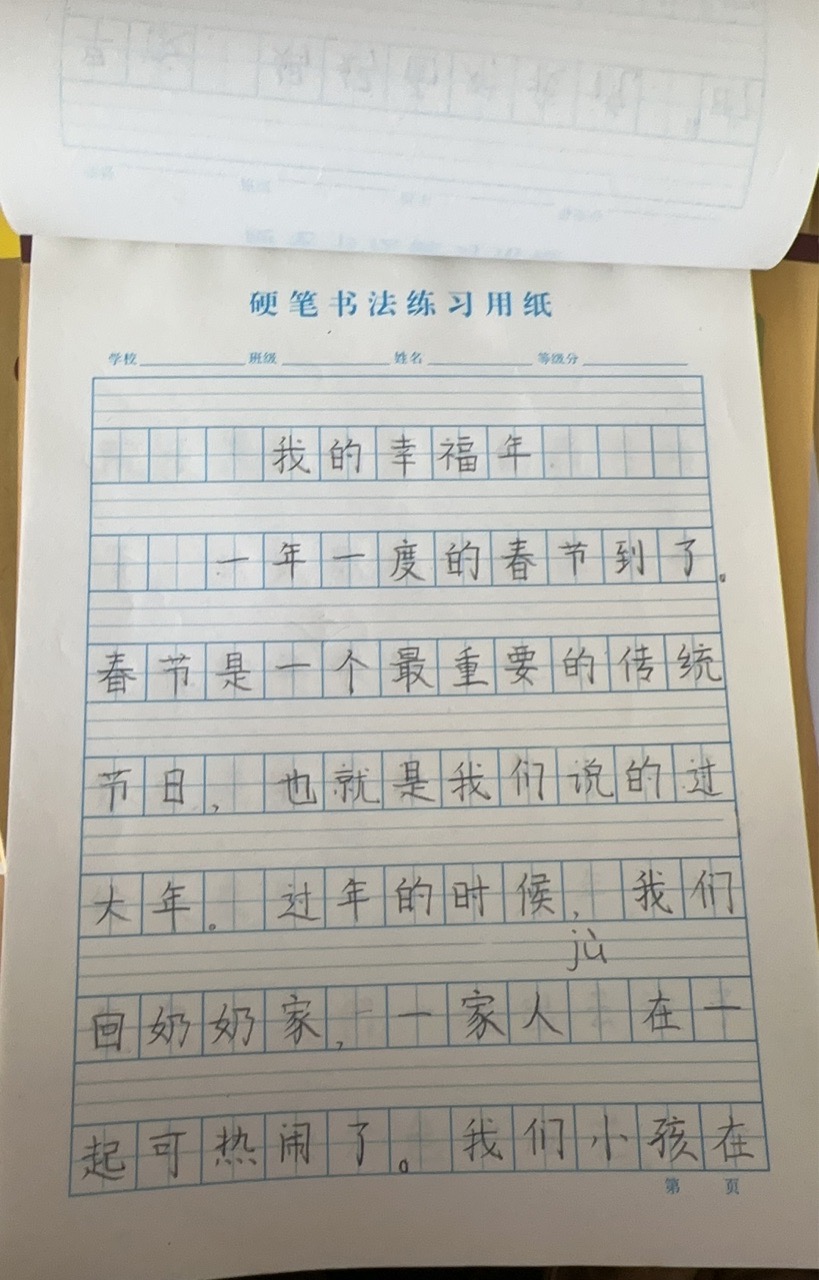 硬笔书法练习用纸
学校 班级 姓名 等级分
我的幸福年
一年一度的春节到了。
春节是一个最重要的传统
节日，也就是我们说的过
大年。过年的时候，我们
jù
回奶奶家，一家人 在一
起可热闹了。我们小孩在
第 页